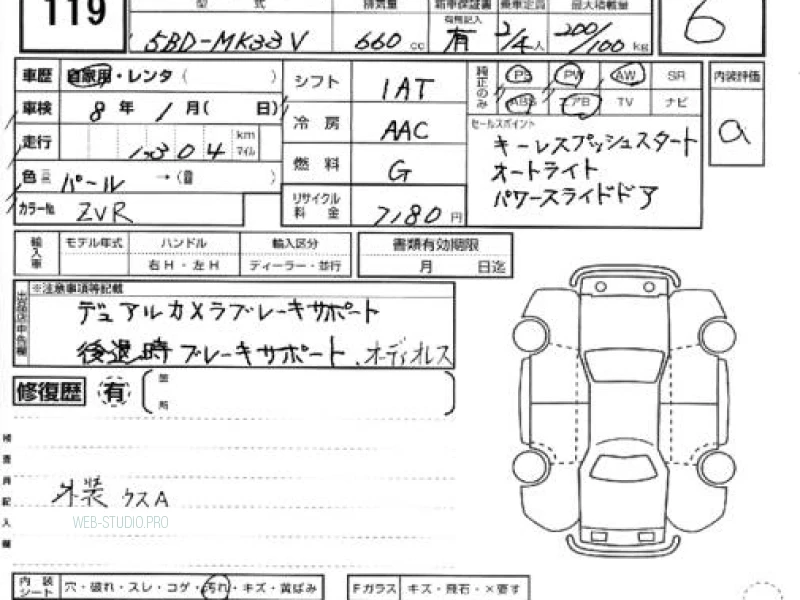 119
型 式 排気量 新車保証書 乗車定員 最大積載量
有無記入
5BD-MK33V 660 cc 有 2/4人 200/100 kg 6
車歴 自家用・レンタ( ) シフト 1AT 純正のみ PS PW AW SR 内装評価
車検 8年 1月( 日) ABS エアB TV ナビ a
走行 1,304 km マイル 冷房 AAC セールスポイント
キーレスプッシュスタート
オートライト
パワースライドドア
色 パール →( ) 燃料 G
カラーNo. ZVR リサイクル料金 7180円
輸入車 モデル年式 ハンドル 輸入区分 書類有効期限
右H・左H ディーラー・並行 月 日迄
※注意事項等記載
出品店申告欄
デュアルカメラブレーキサポート
後退時ブレーキサポート、オーディオレス
修復歴 有 箇所
検査員記入欄
外装 ウスA
WEB-STUDIO.PRO
内装シート 穴・破れ・スレ・コゲ・汚れ・キズ・黄ばみ Fガラス キズ・飛石・×要す